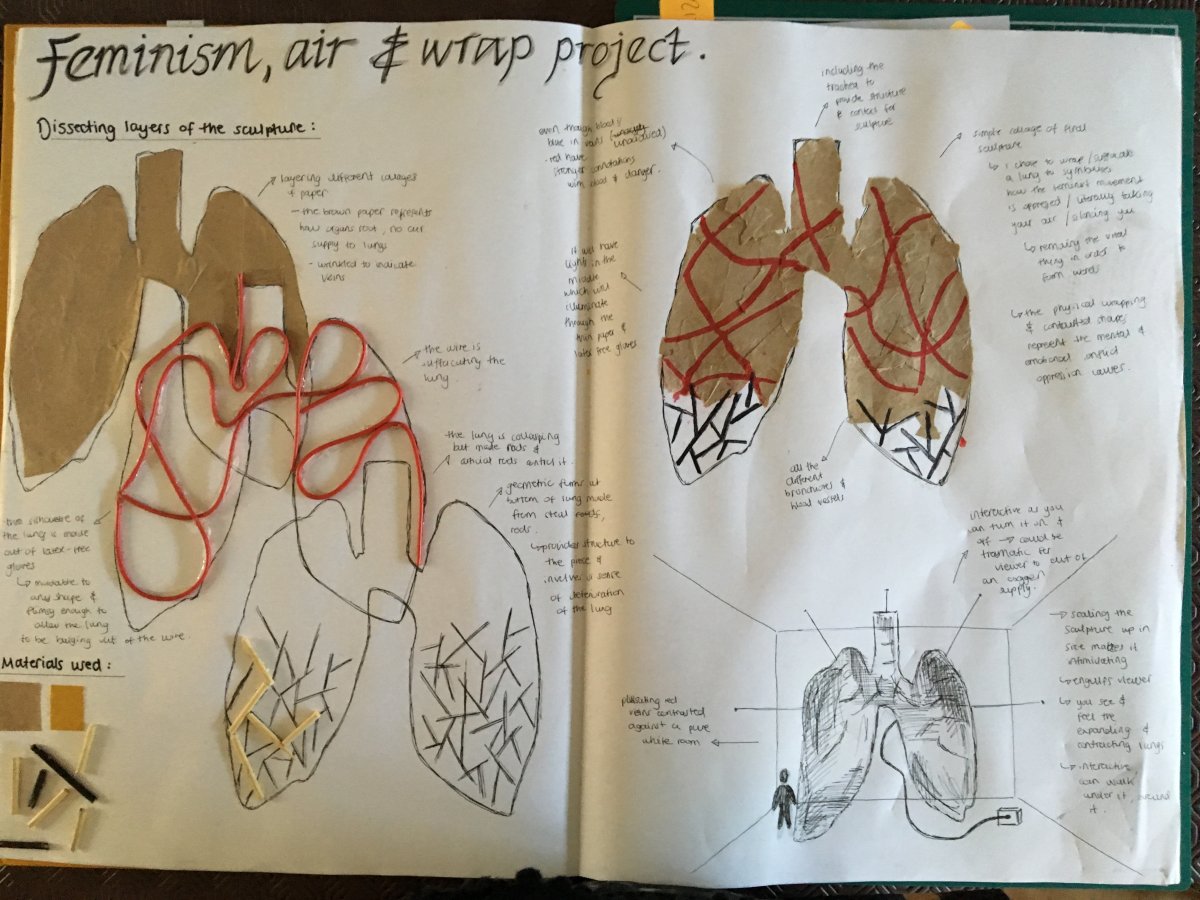 Feminism, air & wrap project.
Dissecting layers of the sculpture:
layering different collages
& paper
- the brown paper represents
how organs root, no air
supply to lungs
- wrinkled to indicate
veins
the wire is
suffacating the
lung
the lung is collapsing
but made rods &
artificial rods control it.
geometric forms at
bottom of lung made
from steal
rods.
provides structure to
the piece &
involves a sense
of deterioration
of the lung
the silhouette of
the lung is made
out of latex-free
gloves
mouldable to
any shape &
flimsy enough to
allow the lung
to be bulging out of the wire.
Materials used:
including the
trachea to
provide structure
& context for
sculpture
even though blood is
blue in
red have
stronger connotations
with blood & danger.
it will have
lights in the
middle
which will
illuminate
through the
brown paper &
latex free gloves
simple collage of final
sculpture
I chose to wrap/suffocate
a lung to symbolise
how the feminist movement
is oppressed / literally taking
your air / silencing you
removing the vital
thing in order to
form words
the physical wrapping
& contorted shapes
represent the mental &
emotional
oppression causes.
all the
different
bronchioles &
blood vessels
interactive as you
can turn it on &
off → could be
traumatic for
viewer to cut of
an oxygen
supply.
pulsating red
veins contrasted
against a pure
white room
scaling the
sculpture up in
size makes it
intimidating
engulfs viewer
you see &
feel the
expanding &
contracting lungs
interactive,
can walk
under it, around
it.